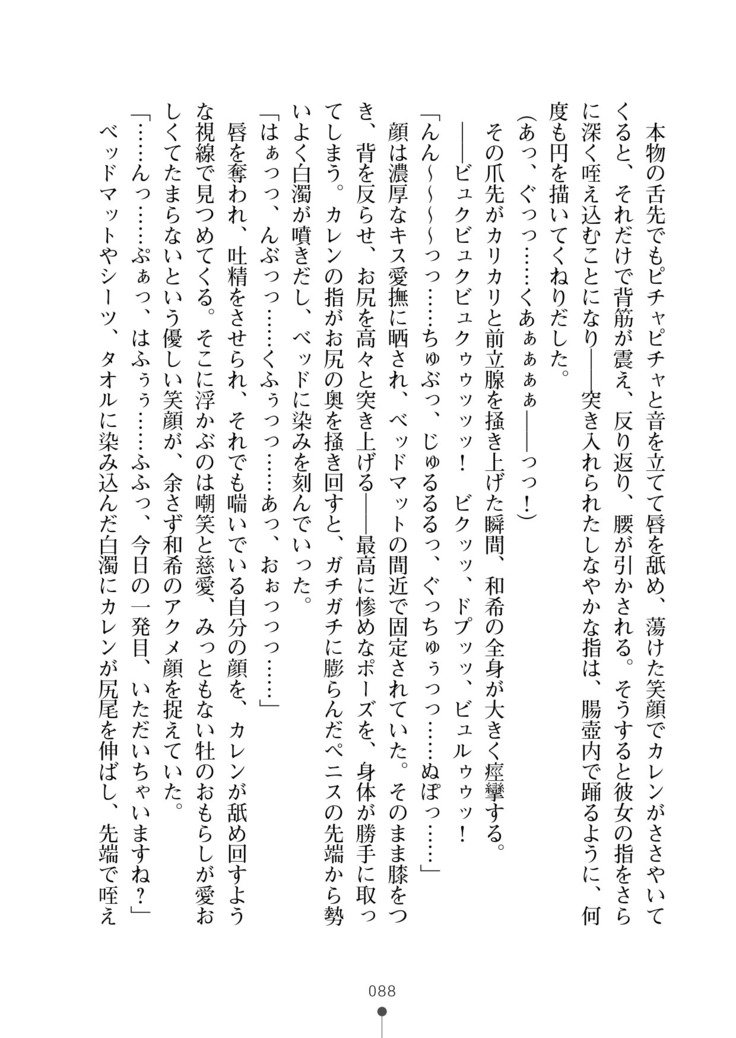 本物の舌先でもピチャピチャと音を立てて唇を舐め、蕩けた笑顔でカレンがささやいて
くると、それだけで背筋が震え、反り返り、腰が引かされる。そうすると彼女の指をさら
に深く咥え込むことになり――突き入れられたしなやかな指は、腸壺内で踊るように、何
度も円を描いてくねりだした。
(あっ、ぐっっ……くあぁぁぁぁ――っっ！)
その爪先がカリカリと前立腺を掻き上げた瞬間、和希の全身が大きく痙攣する。
――ビュクビュクビュクゥゥッッッ！　ビクッッ、ドプッッ、ビュルゥゥッ！
「んん～～～～っっ……ちゅぶっ、じゅるるるっ、ぐっちゅぅっっ……ぬぽっ……」
顔は濃厚なキス愛撫に晒され、ベッドマットの間近で固定されていた。そのまま膝をつ
き、背を反らせ、お尻を高々と突き上げる――最高に惨めなポーズを、身体が勝手に取っ
てしまう。カレンの指がお尻の奥を掻き回すと、ガチガチに膨らんだペニスの先端から勢
いよく白濁が噴きだし、ベッドに染みを刻んでいった。
「はぁっっ、んぶっっ……くふぅっっ……あっ、おぉっっっ……」
唇を奪われ、吐精をさせられ、それでも喘いでいる自分の顔を、カレンが舐め回すよう
な視線で見つめてくる。そこに浮かぶのは嘲笑と慈愛、みっともない牡のおもらしが愛お
しくてたまらないという優しい笑顔が、余さず和希のアクメ顔を捉えていた。
「……んっ……ぷぁっ、はふぅぅ……ふふっ、今日の一発目、いただいちゃいますね？」
ベッドマットやシーツ、タオルに染み込んだ白濁にカレンが尻尾を伸ばし、先端で咥え
088